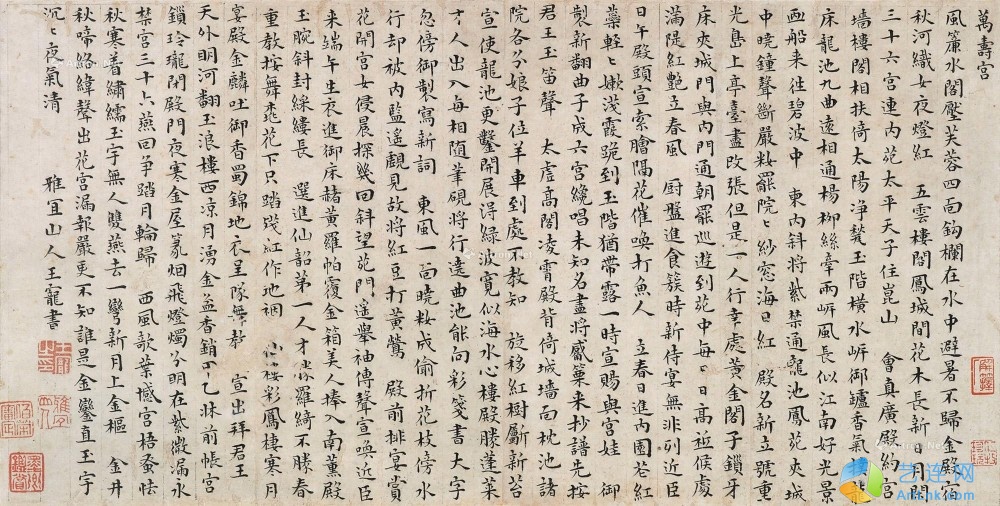 萬壽宮
風簾水閣壓芙蓉四面鈎欄在水中避暑不歸金殿宿
秋河織女夜燈紅 五雲樓閣鳳城間花木長新日月閒
三十六宮連內苑太平天子住崑山 會真廣殿約宮
墻樓閣相扶倚太陽淨甃玉階橫水岸御爐香氣
床龍池九曲遠相通楊柳絲牽兩岸風長似江南好光景
畫船來往碧波中 東內斜將紫禁通龍池鳳苑夾城
中曉鐘聲斷嚴粧罷院〻紗窓海日紅 殿名新立號重
光島上亭臺盡改張但是一人行幸處黃金閣子鎖牙
床夾城門與內門通朝罷巡遊到苑中每日日高祗候處
滿隄紅艷立春風 厨盤進食簇時新侍宴無非列近臣
日午殿頭宣索膾隔花催喚打魚人 立春日進內園花紅
蘂輕〻嫩淺霞跪到玉階猶帶露一時宣賜與宮娃 御
製新翻曲子成六宮纔唱未知名盡將觱篥來抄譜先按
君王玉笛聲 太虛高閣凌霄殿背倚城墻面枕池諸
院各分娘子位羊車到處不教知 旋移紅樹斸新苔
宣使龍池更鑿開展得綠波寬似海水心樓殿勝蓬萊
才人出入每相隨筆硯將行遶曲池能向彩箋書大字
忽傍御製寫新詞 東風一面曉粧成偷折花枝傍水
行却被內監遙覷見故將紅豆打黃鶯 殿前排宴賞
花開宮女侵晨探幾回斜望苑門遙舉袖傳聲宣喚近臣
來端午生衣進御床赭黃羅帕覆金箱美人捧入南薰殿
玉腕斜封綵縷長 選進仙韶第一人才勝羅綺不勝春
重教按舞桃花下只踏殘紅作地裀 彩鳳樓寒月
宴殿金麟吐御香蜀錦地衣呈隊舞教 宣出拜君王
天外明河翻玉浪樓西涼月湧金盆香銷甲乙牀前帳宮
鎖玲瓏閉殿門夜寒金屋篆烟飛燈燭分明在紫微漏永
禁宮三十六燕回爭踏月輪歸 西風葉撼宮梧蚤怯
秋寒着繡襦玉宇無人雙燕去一彎新月上金樞 金井
秋啼絡緯聲出花宮漏報嚴更不知誰是金鑾直玉宇
沉〻夜氣清 雅宜山人王寵書
艺连网